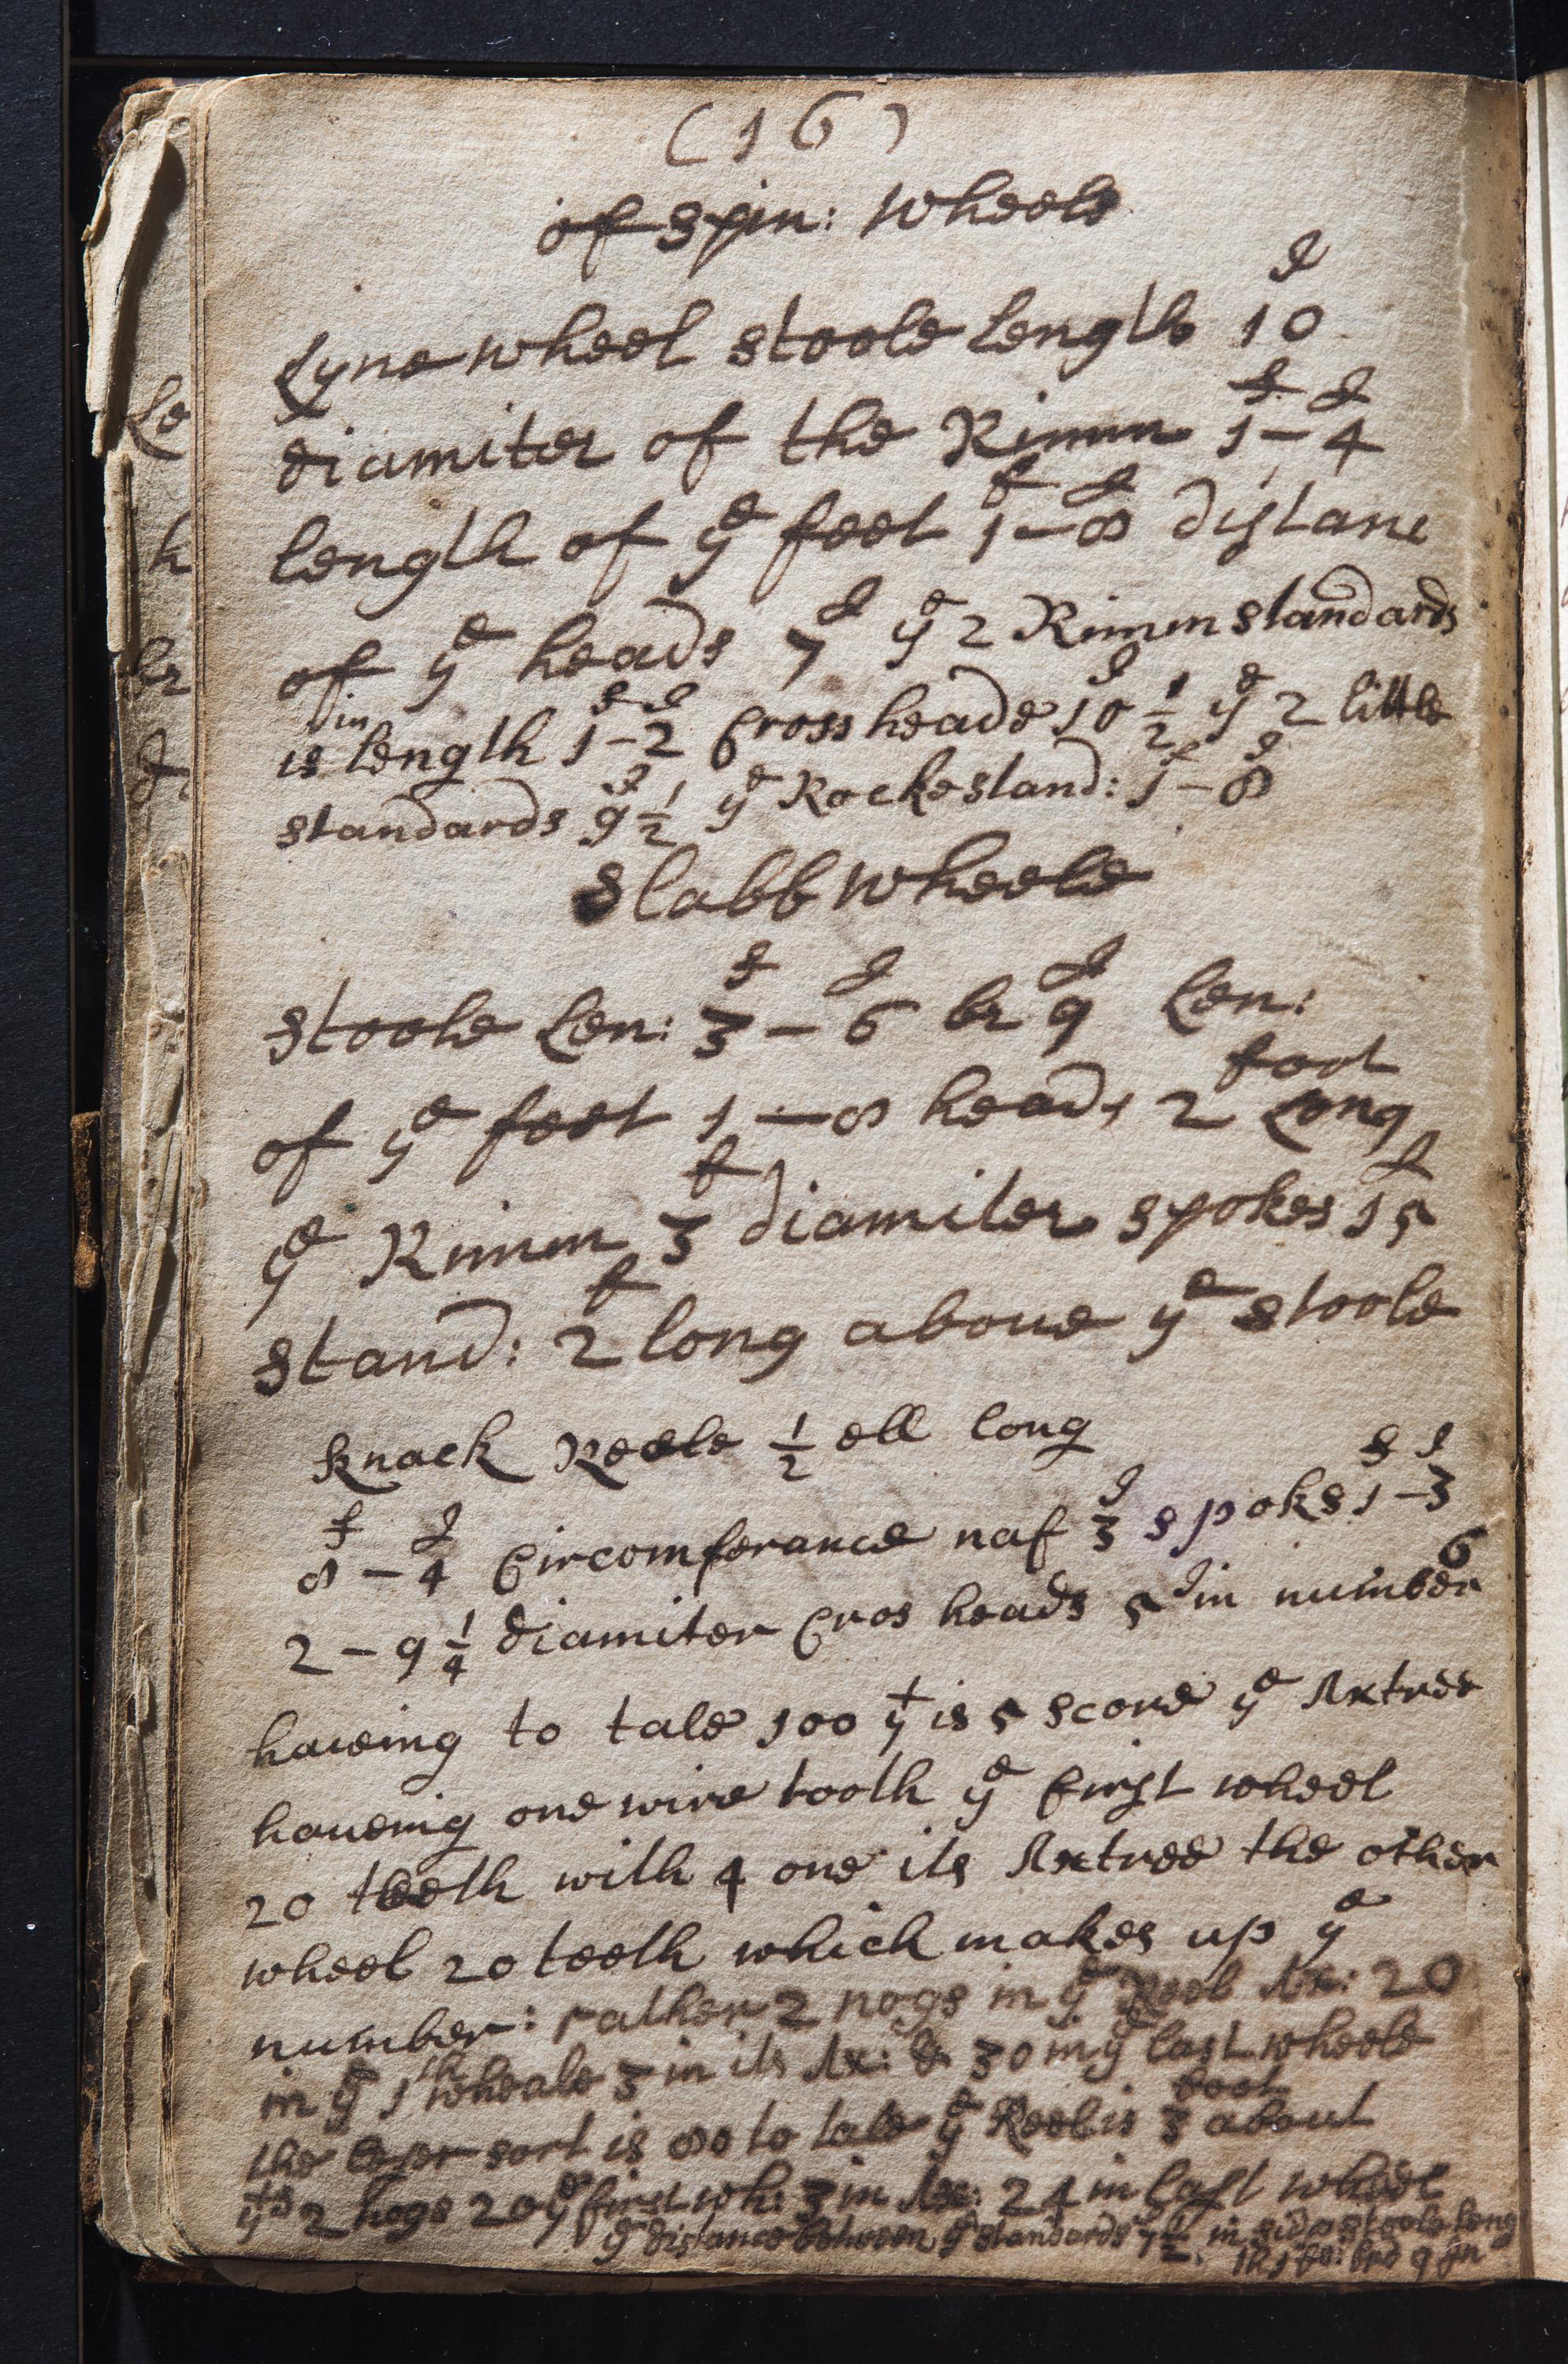 (16)
of Spin: Wheels
Lyne wheel stoole length 10 I
diamiter of the Rimm 1 f - 4 I
length of yᵉ feet 1 f - 8 I distanc
of yᵉ heads 7 I yᵉ 2 Rimm standards
is in length 1 f - 2 I Cross heade 10 I 1/2 yᵉ 2 little
standards 9 I 1/2 yᵉ Rocke stand: 1 f - 8 I
Slabb wheele
Stoole Len: 3 f - 6 I br 9 I Len:
of yᵉ feet 1 - 8 heads 2 foot Long
yᵉ Rimm 3 f diamiter spokes 15 I
stand: 2 f long aboue yᵉ stoole
Knack Reele 1/2 ell long
8 f - 4 I Circomferance naf 3 I spoks 1 f - 3 I
2 - 9 1/4 diamiter Cros heads 5 I in number 6
haueing to tale 100 yᵗ is 5 score yᵉ Axtree
haueing one wire tooth yᵉ first wheel
20 teeth with 4 one its Axtree the other
wheel 20 teeth which makes up yᵉ
number: rather 2 nogs in yᵉ Reel Ax: 20
in yᵉ 1th wheale 3 in its Ax: & 30 in yᵉ last wheele
the leser sort is 80 to tale yᵉ Reel is 3 foot about
2 nogs 20 yᵉ first wh: 3 in Ax: 24 in last wheel
yᵉ distance between yᵉ standards 7 1/2 in side stoole leng
th 1 fo: brd 9 in
Le
h
br